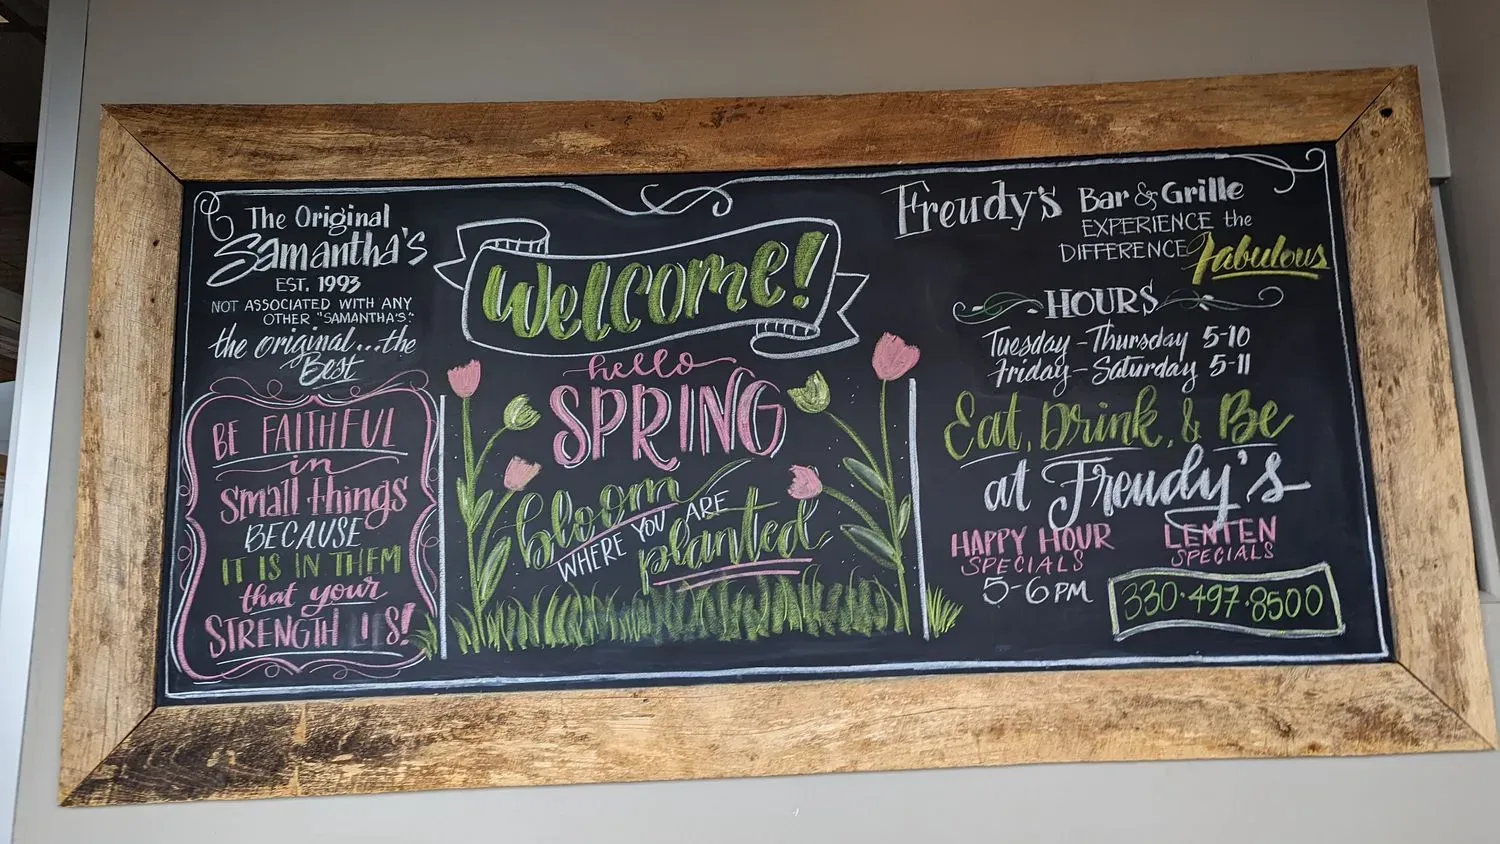 The Original
Samantha's
EST. 1993
NOT ASSOCIATED WITH ANY
OTHER "SAMANTHA'S."
the original...the
Best
BE FAITHFUL
in
small things
BECAUSE
IT IS IN THEM
that your
STRENGTH LIES!
Welcome!
hello
SPRING
bloom
WHERE YOU ARE
planted
Freudy's Bar & Grille
EXPERIENCE the
DIFFERENCE Fabulous
HOURS
Tuesday - Thursday 5-10
Friday - Saturday 5-11
Eat, Drink, & Be
at Freudy's
HAPPY HOUR
SPECIALS
5-6 PM
LENTEN
SPECIALS
330·497·8500